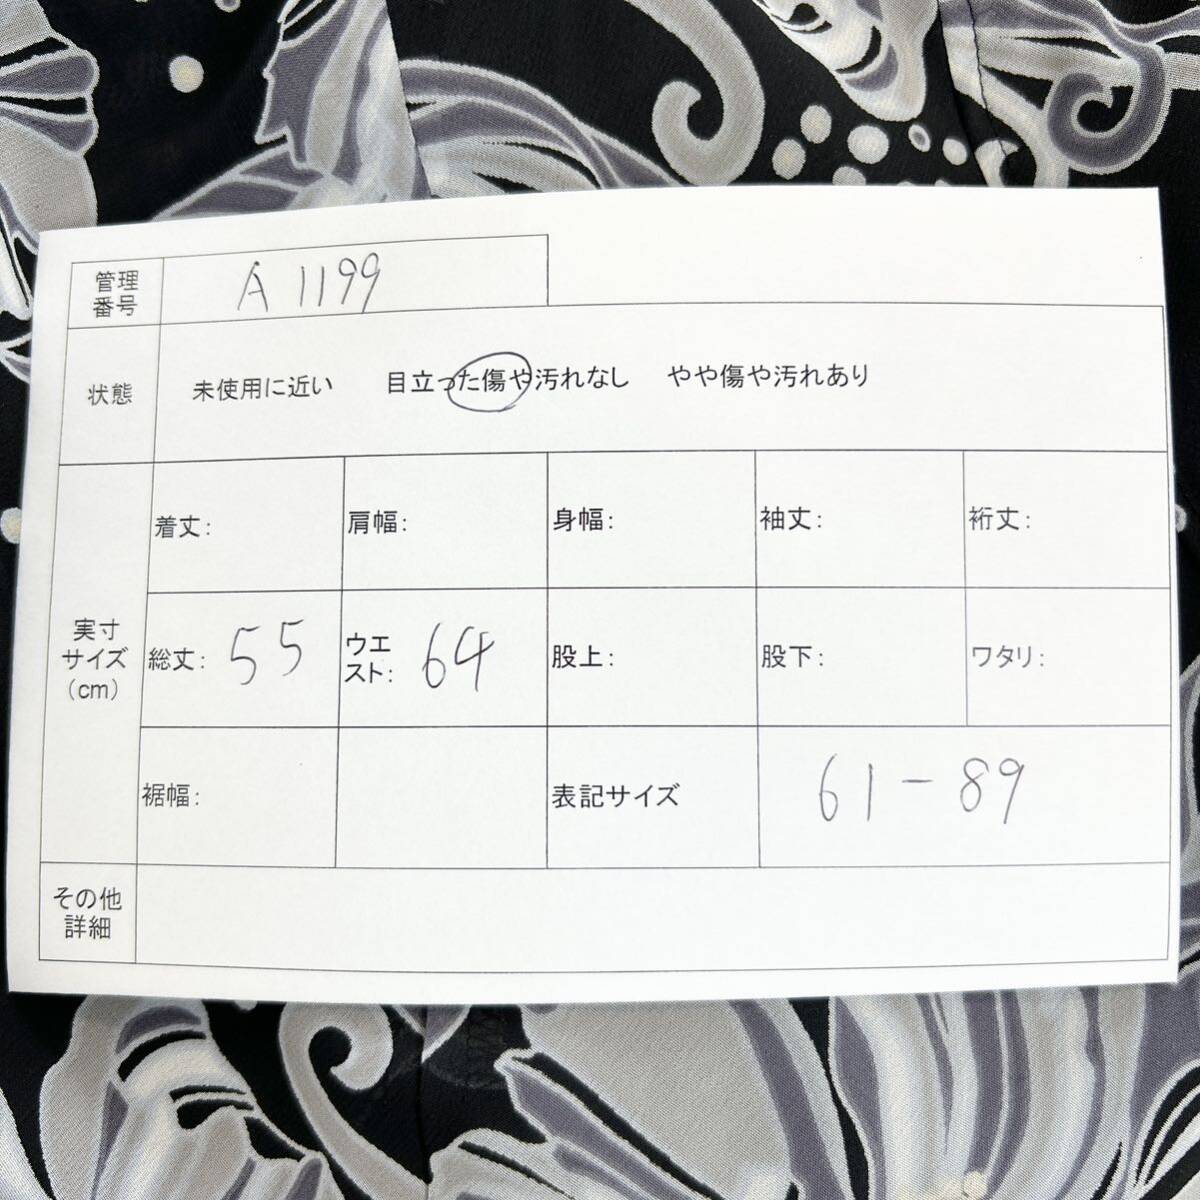 管理
番号
A 1199
状態
未使用に近い 目立った傷や汚れなし やや傷や汚れあり
実寸
サイズ
(cm)
着丈:
肩幅:
身幅:
袖丈:
裄丈:
総丈: 55
ウエ
スト: 64
股上:
股下:
ワタリ:
裾幅:
表記サイズ
61-89
その他
詳細